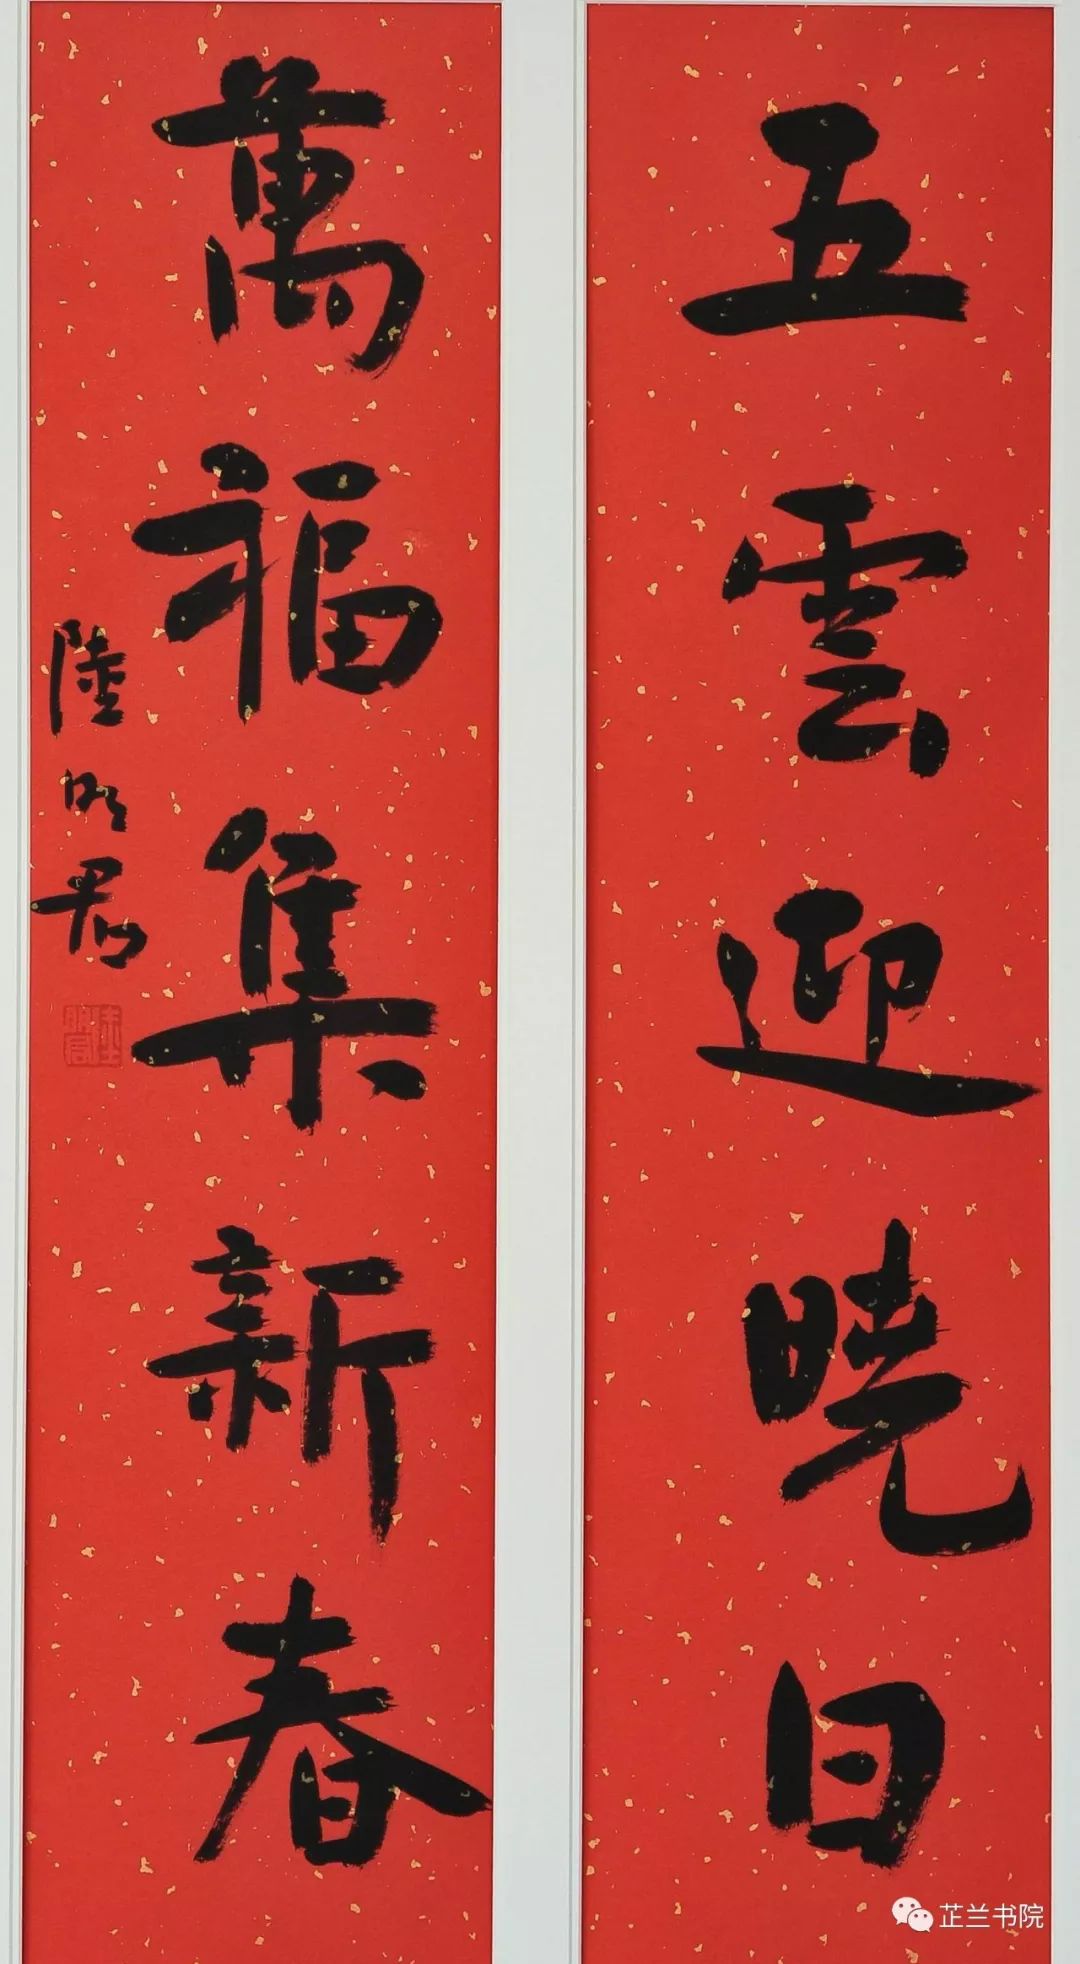 五雲迎曉日
萬福集新春
陸明君
芷兰书院